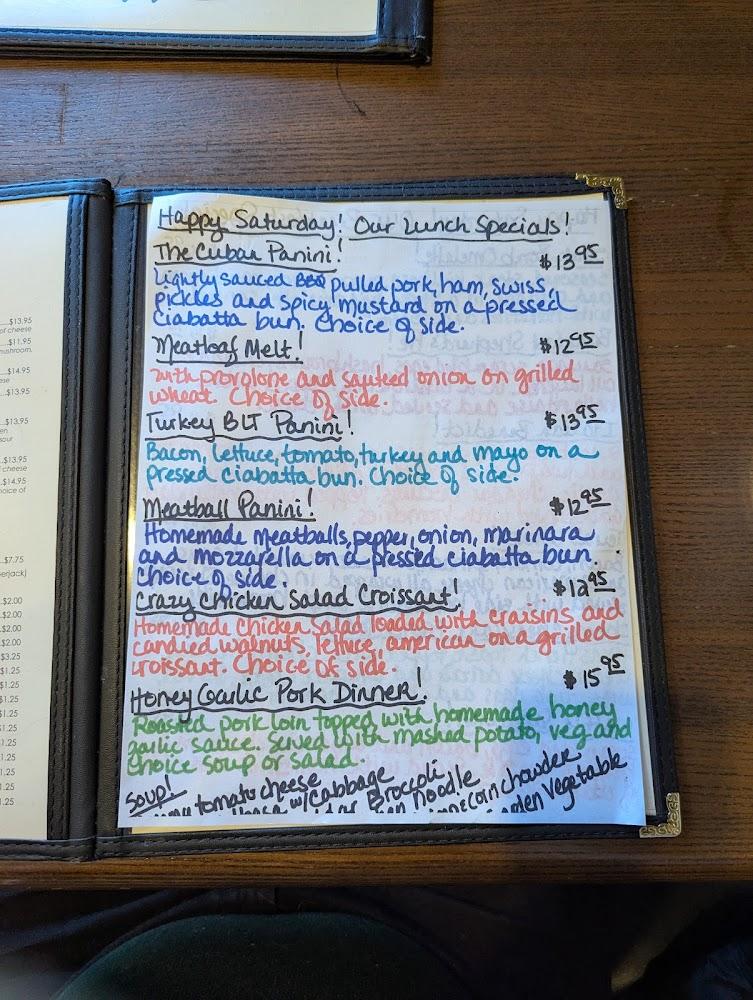 Happy Saturday! Our Lunch Specials!
The Cuban Panini! $13.95
Lightly sauced BBQ pulled pork, ham, swiss,
pickles and spicy mustard on a pressed
ciabatta bun. Choice of side.
Meatloaf Melt! $12.95
with provolone and sauteed onion on grilled
wheat. Choice of side.
Turkey BLT Panini! $13.95
Bacon, lettuce, tomato, turkey and mayo on a
pressed ciabatta bun. Choice of side.
Meatball Panini! $12.95
Homemade meatballs, pepper, onion, marinara
and mozzarella on a pressed ciabatta bun.
Choice of side.
Crazy Chicken Salad Croissant! $12.95
Homemade chicken salad loaded with craisins and
candied walnuts, lettuce, american on a grilled
croissant. Choice of side.
Honey Garlic Pork Dinner! $15.95
Roasted pork loin topped with homemade honey
garlic sauce. Served with mashed potato, veg and
choice soup or salad.
Soup!
tomato cheese
w/Cabbage
Broccoli
Noodle
corn chowder
Vegetable
$13.95
of cheese
$11.95
mushroom,
$14.95
$13.95
$13.95
$13.95
cheese
$14.95
$7.75
$2.00
$2.00
$2.00
$2.00
$3.25
$1.25
$1.25
$1.25
$1.25
$1.25